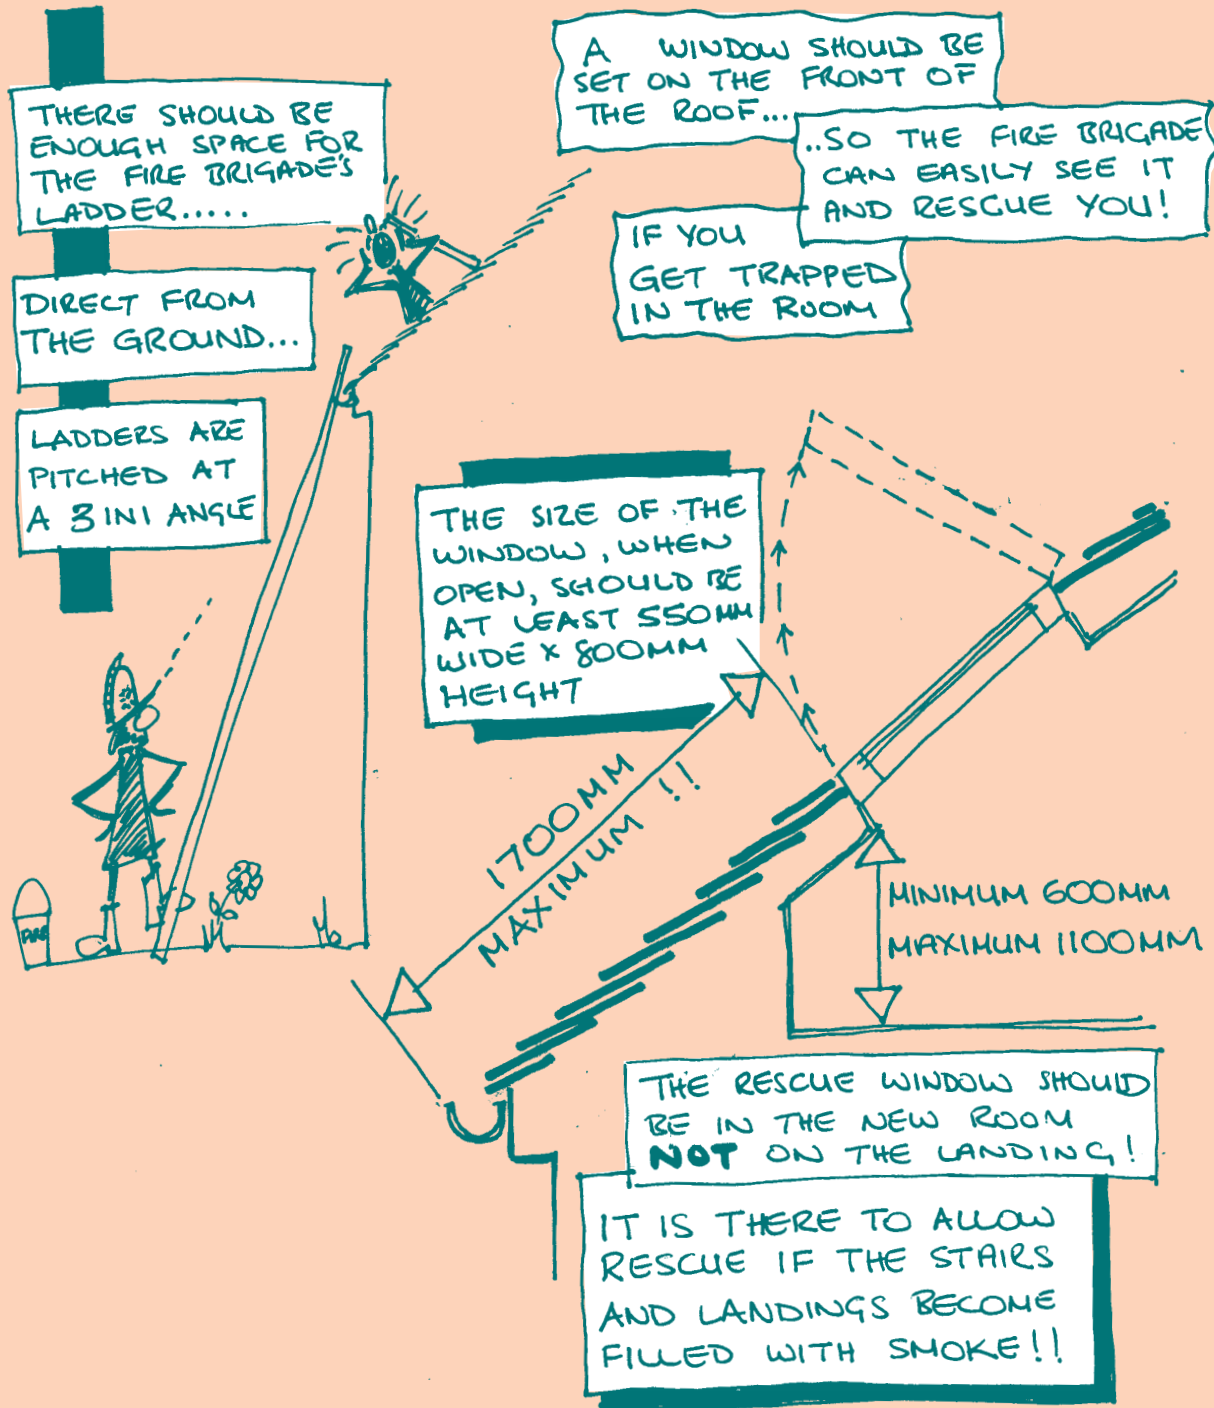 THERE SHOULD BE
ENOUGH SPACE FOR
THE FIRE BRIGADE'S
LADDER.....
DIRECT FROM
THE GROUND...
LADDERS ARE
PITCHED AT
A 3 IN 1 ANGLE
A WINDOW SHOULD BE
SET ON THE FRONT OF
THE ROOF...
..SO THE FIRE BRIGADE
CAN EASILY SEE IT
AND RESCUE YOU!
IF YOU
GET TRAPPED
IN THE ROOM
THE SIZE OF THE
WINDOW, WHEN
OPEN, SHOULD BE
AT LEAST 550MM
WIDE X 800MM
HEIGHT
1700MM
MAXIMUM !!
MINIMUM 600MM
MAXIMUM 1100MM
FIRE
THE RESCUE WINDOW SHOULD
BE IN THE NEW ROOM
NOT ON THE LANDING!
IT IS THERE TO ALLOW
RESCUE IF THE STAIRS
AND LANDINGS BECOME
FILLED WITH SMOKE!!